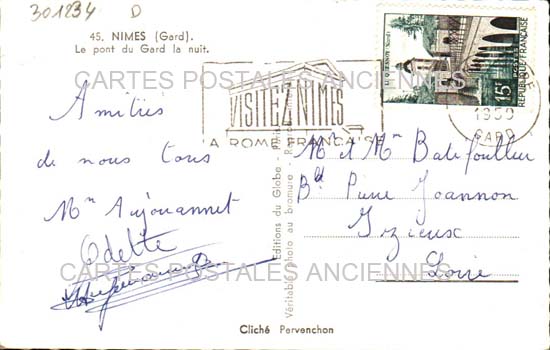 301234 D
45. NIMES (Gard).
Le pont du Gard la nuit.
CARTES POSTALES ANCIENNES
VISITEZ NIMES
LA ROME FRANÇAISE
LE QUESNOY (Nord)
15F
POSTES
REPUBLIQUE FRANÇAISE
GARD
Amitiés
de nous tous
Mme Anjouannet
Odette
Editions du Globe - Paris
Véritable photo au bromure -
Mr et Mme Batifoullier
Bd Pierre Joannon
Izieux
Loire
CARTES POSTALES ANCIENNES
Cliché Pervenchon